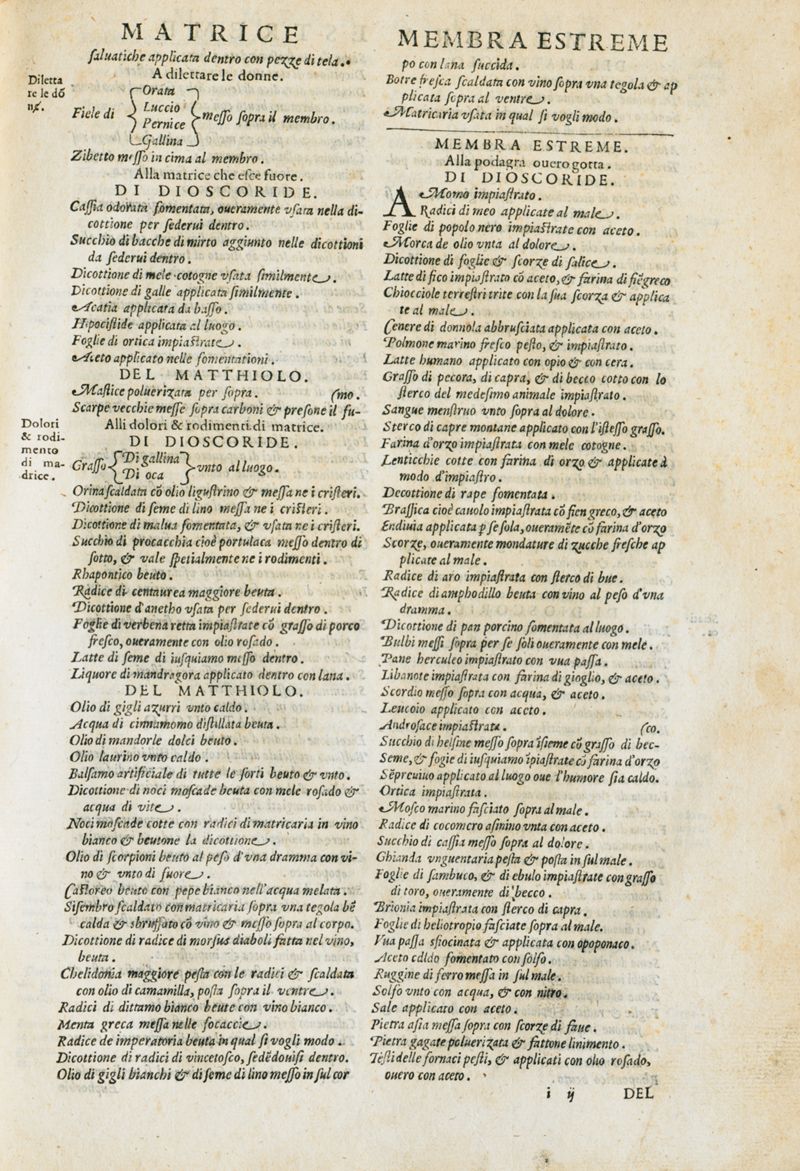 MATRICE
saluatiche applicata dentro con pezze di tela.
A dilettare le donne.
Diletta
re le dō
ne.
Fiele di { Orata
Luccio
Pernice
Gallina } messo sopra il membro.
Zibetto messo in cima al membro.
Alla matrice che esce fuore.
DI DIOSCORIDE.
Cassia odorata fomentata, oueramente vsata nella di-
cottione per sederui dentro.
Succhio di bacche di mirto aggiunto nelle dicottioni
da sederui dentro.
Dicottione di mele cotogne vsata similmente.
Dicottione di galle applicata similmente.
Acatia applicata da basso.
Hipocistide applicata al luogo.
Foglie di ortica impiastrate.
Aceto applicato nelle fomentationi.
DEL MATTHIOLO.
Mastice poluerizata per sopra. (mo.
Scarpe vecchie messe sopra carboni & presone il fu-
Dolori
& rodi-
mento
di ma-
drice.
Alli dolori & rodimenti di matrice.
DI DIOSCORIDE.
Grasso { Di gallina
Di oca } vnto al luogo.
Orina scaldata cō olio ligustrino & messa ne i cristeri.
Dicottione di seme di lino messa ne i cristeri.
Dicottione di malua fomentata, & vsata ne i cristeri.
Succhio di procacchia cioè portulaca messo dentro di
sotto, & vale spetialmente ne i rodimenti.
Rhapontico beuto.
Radice di centaurea maggiore beuta.
Dicottione d'anetho vsata per sederui dentro.
Foglie di verbena retta impiastrate cō grasso di porco
fresco, oueramente con olio rosado.
Latte di seme di iusquiamo messo dentro.
Liquore di mandragora applicato dentro con lana.
DEL MATTHIOLO.
Olio di gigli azurri vnto caldo.
Acqua di cinnamomo distillata beuta.
Olio di mandorle dolci beuto.
Olio laurino vnto caldo.
Balsamo artificiale di tutte le sorti beuto & vnto.
Dicottione di noci moscade beuta con mele rosado &
acqua di vite.
Noci moscade cotte con radici di matricaria in vino
bianco & beutone la dicottione.
Olio di scorpioni beuto al peso d'vna dramma con vi-
no & vnto di fuore.
Castoreo beuto con pepe bianco nell'acqua melata.
Sisembro scaldato con matricaria sopra vna tegola bē
calda & sbruffato cō vino & messo sopra al corpo.
Dicottione di radice di morsus diaboli fatta nel vino,
beuta.
Chelidonia maggiore pesta con le radici & scaldata
con olio di camamilla, posta sopra il ventre.
Radici di dittamo bianco beute con vino bianco.
Menta greca messa nelle focaccie.
Radice de imperatoria beuta in qual si vogli modo.
Dicottione di radici di vincetosco, sedēdouisi dentro.
Olio di gigli bianchi & di seme di lino messo in sul cor
MEMBRA ESTREME
po con lana succida.
Botre fresca scaldata con vino sopra vna tegola & ap
plicata sopra al ventre.
Matricaria vsata in qual si vogli modo.
MEMBRA ESTREME.
Alla podagra ouero gotta.
DI DIOSCORIDE.
AMomo impiastrato.
Radici di meo applicate al male.
Foglie di popolo nero impiastrate con aceto.
Morca de olio vnta al dolore.
Dicottione di foglie & scorze di salice.
Latte di fico impiastrato cō aceto, & farina di fiēgreco
Chiocciole terrestri trite con la sua scorza & applica
te al male.
Cenere di donnola abbrusciata applicata con aceto.
Polmone marino fresco pesto, & impiastrato.
Latte humano applicato con opio & con cera.
Grasso di pecora, di capra, & di becco cotto con lo
sterco del medesimo animale impiastrato.
Sangue menstruo vnto sopra al dolore.
Sterco di capre montane applicato con l'istesso grasso.
Farina d'orzo impiastrata con mele cotogne.
Lenticchie cotte con farina di orzo & applicate à
modo d'impiastro.
Decottione di rape fomentata.
Brassica cioè cauolo impiastrata cō fien greco, & aceto
Endiuia applicata p se sola, oueramēte cō farina d'orzo
Scorze, oueramente mondature di zucche fresche ap
plicate al male.
Radice di aro impiastrata con sterco di bue.
Radice di amphodillo beuta con vino al peso d'vna
dramma.
Dicottione di pan porcino fomentata al luogo.
Bulbi messi sopra per se soli oueramente con mele.
Pane herculeo impiastrato con vua passa.
Libanote impiastrata con farina di gioglio, & aceto.
Scordio messo sopra con acqua, & aceto.
Leucoio applicato con aceto.
Androsace impiastrata. (co.
Succhio di helsine messo sopra īsieme cō grasso di bec-
Seme, & fogie di iusquiamo īpiastrate cō farina d'orzo
Sēpreuiuo applicato al luogo oue l'humore sia caldo.
Ortica impiastrata.
Mosco marino fasciato sopra al male.
Radice di cocomero asinino vnta con aceto.
Succhio di cassia messo sopra al dolore.
Ghianda vnguentaria pesta & posta in sul male.
Foglie di sambuco, & di ebulo impiastrate con grasso
di toro, oueramente di becco.
Brionia impiastrata con sterco di capra.
Foglie di heliotropio fasciate sopra al male.
Vua passa sfiocinata & applicata con opoponaco.
Aceto caldo fomentato con solfo.
Ruggine di ferro messa in sul male.
Solfo vnto con acqua, & con nitro.
Sale applicato con aceto.
Pietra asia messa sopra con scorze di faue.
Pietra gagate poluerizata & fattone linimento.
Testi delle fornaci pesti, & applicati con olio rosado,
ouero con aceto.
i ij DEL